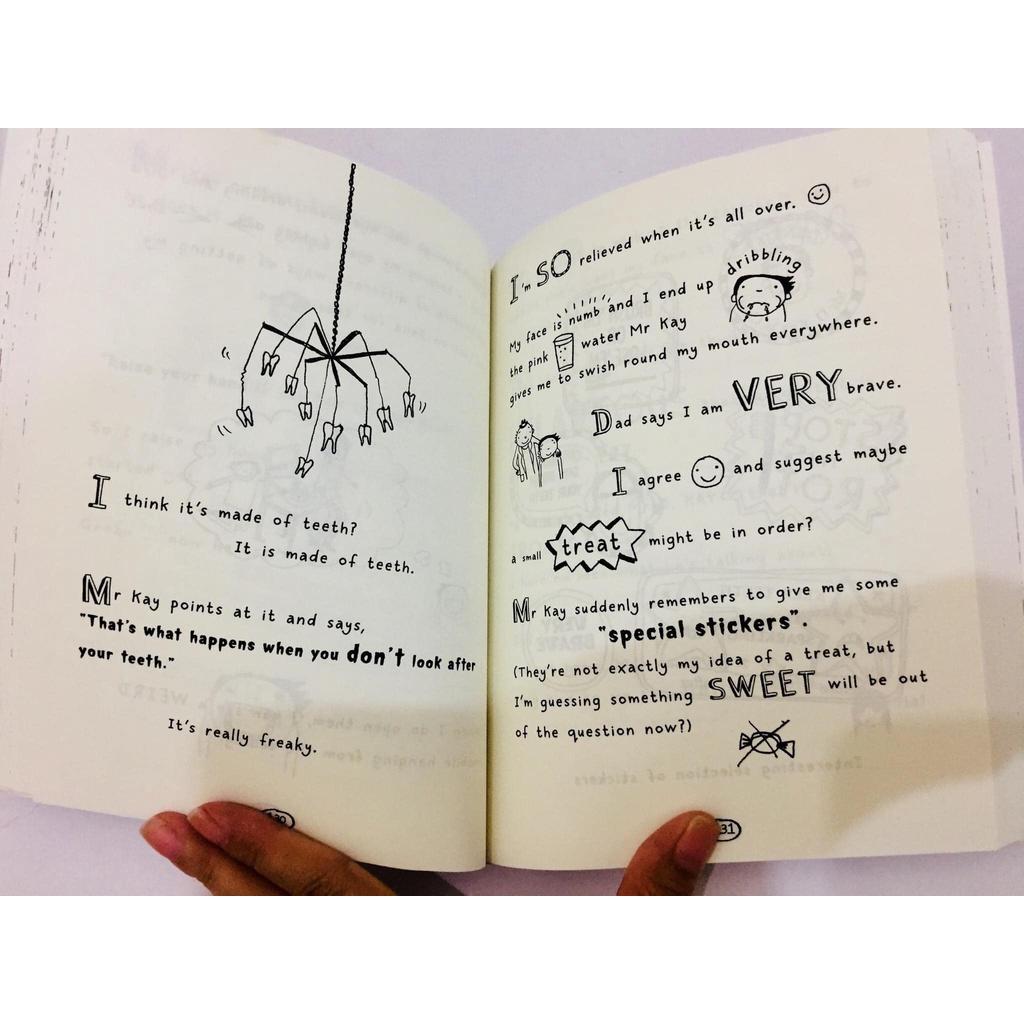 I think it's made of teeth?
It is made of teeth.
Mr Kay points at it and says,
"That's what happens when you don't look after
your teeth."
It's really freaky.
I'm SO relieved when it's all over.
dribbling
My face is numb and I end up
the pink water Mr Kay
gives me to swish round my mouth everywhere.
Dad says I am VERY brave.
I agree and suggest maybe
a small treat might be in order?
Mr Kay suddenly remembers to give me some
"special stickers".
(They're not exactly my idea of a treat, but
I'm guessing something SWEET will be out
of the question now?)